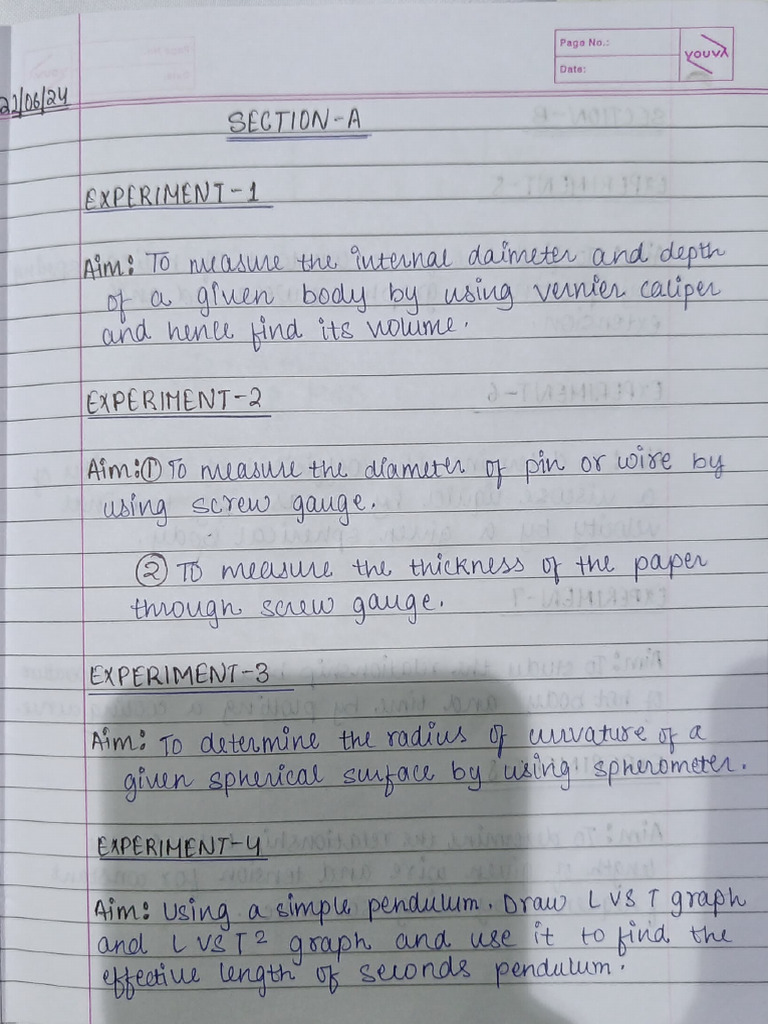 Page No.:
Date:
youva
21/06/24
SECTION-A
EXPERIMENT-1
Aim: To measure the internal daimeter and depth
of a given body by using vernier caliper
and hence find its volume.
EXPERIMENT-2
Aim: ① To measure the diameter of pin or wire by
using screw gauge.
② To measure the thickness of the paper
through screw gauge.
EXPERIMENT-3
Aim: To determine the radius of curvature of a
given spherical surface by using spherometer.
EXPERIMENT-4
Aim: Using a simple pendulum. Draw L VS T graph
and L VS T² graph and use it to find the
effective length of seconds pendulum.